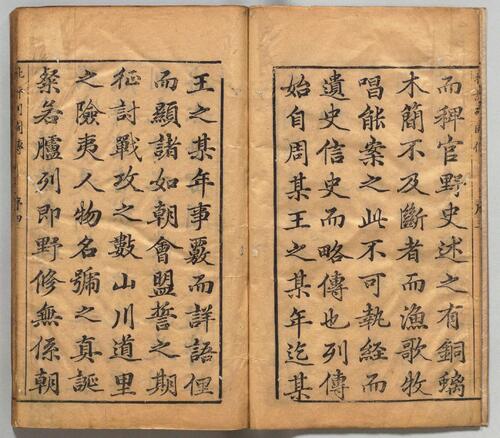 而稗官野史述之有銅螭
木簡不及斷者而漁歌牧
唱能案之此不可執經而
遺史信史而略傳也列傳
始自周某王之某年迄某
王之某年事覈而詳語俚
而顯諸如朝會盟誓之期
征討戰攻之數山川道里
之險夷人物名號之真誕
粲若臚列即野修無係朝